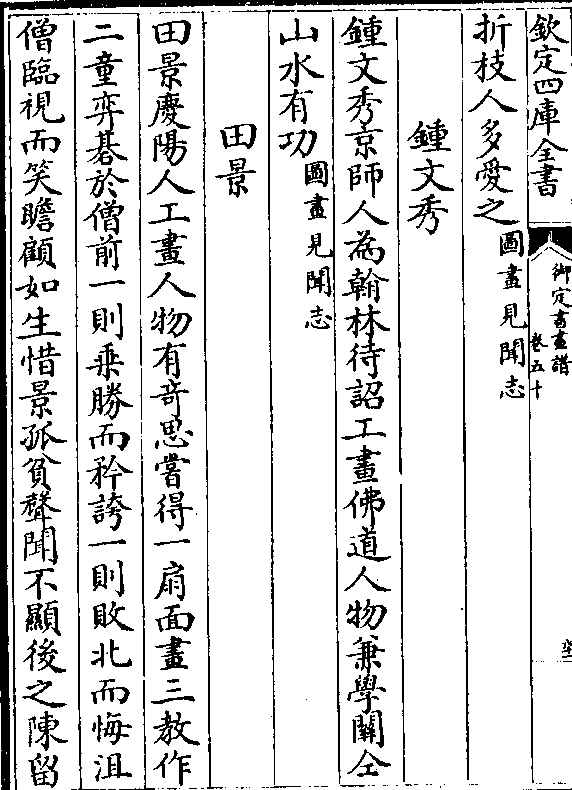 欽定四庫全書
御定書畫譜
卷五十
折枝人多愛之圖畫見聞志
鍾文秀
鍾文秀京師人為翰林待詔工畫佛道人物兼學關仝
山水有功圖畫見聞志
田景
田景慶陽人工畫人物有奇思嘗得一扇面畫三教作
二童弈碁於僧前一則乗勝而矜誇一則敗北而悔沮
僧臨視而笑瞻顧如生惜景孤貧聲聞不顯後之陳留